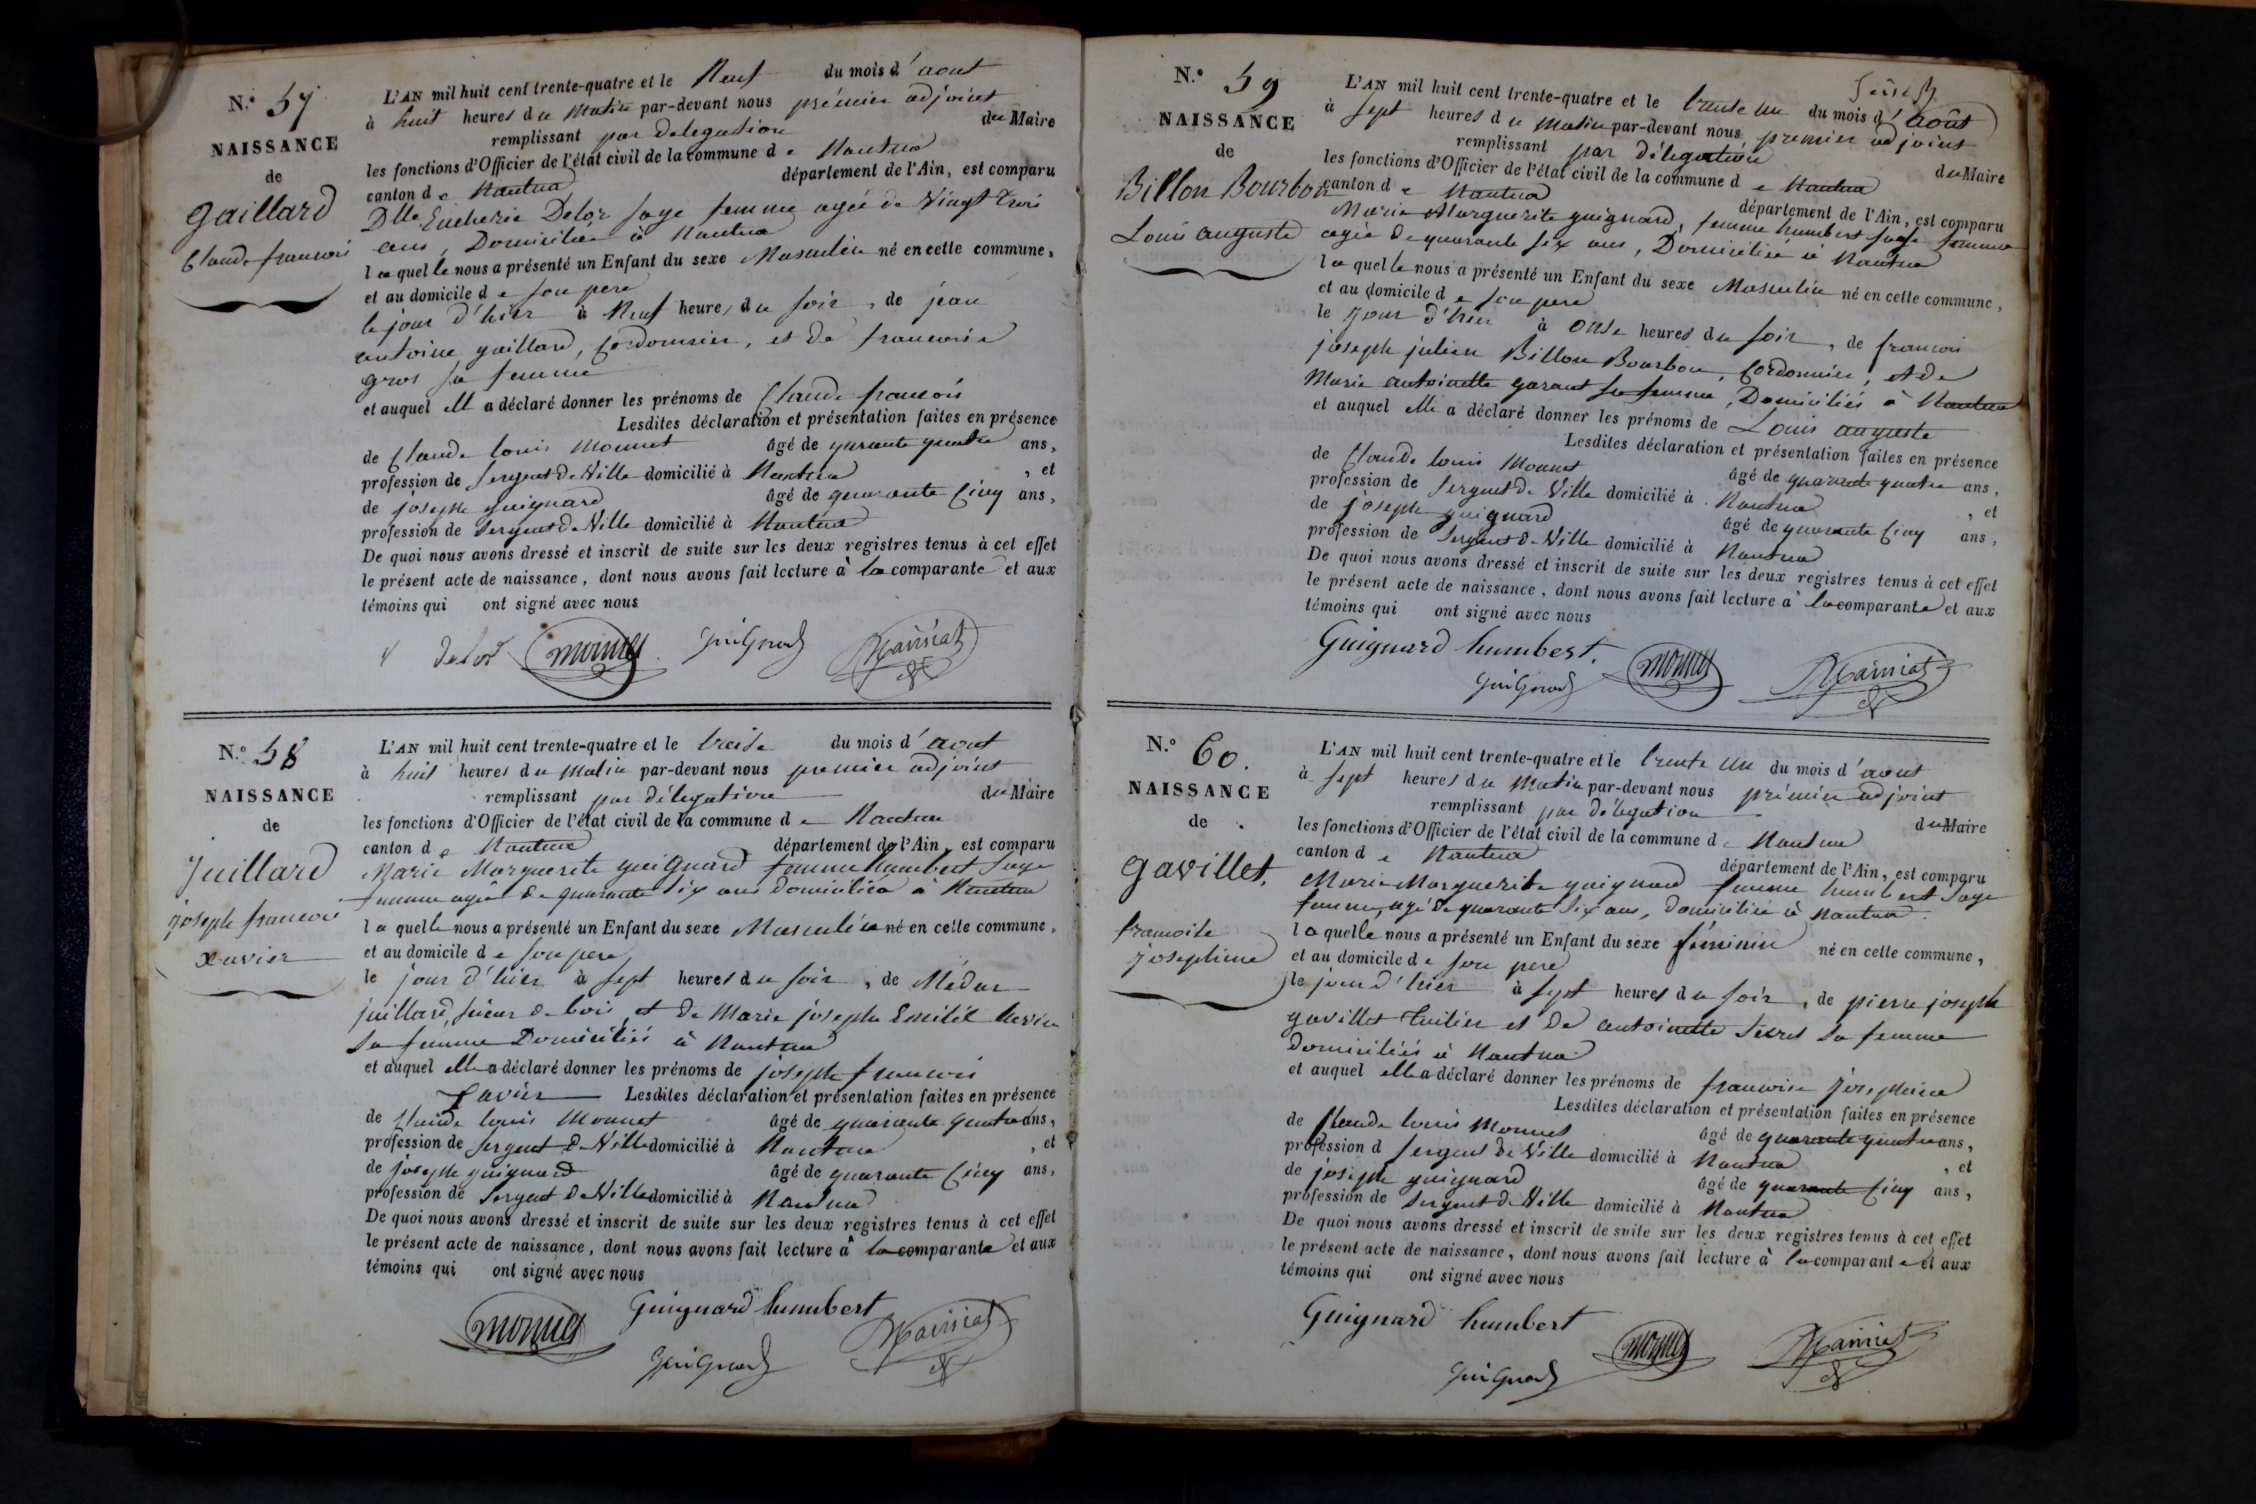 N.° 57
NAISSANCE
de
Gaillard
Claude francois
L'AN mil huit cent trente-quatre et le Neuf du mois d'aout
à huit heures du Matin par-devant nous prémier adjoint
du Maire
remplissant par delegation
les fonctions d'Officier de l'état civil de la commune de Nantua
canton de Nantua département de l'Ain, est comparu
Dlle Eucherie Delor sage femme agée de Vingt trois
ans, Domiciliée à Nantua
laquelle nous a présenté un Enfant du sexe Masculin né en cette commune,
et au domicile de son pere
le jour d'hier à Neuf heures du soir, de jean
antoine gaillard, Cordonnier, et de francoise
gros sa femme
et auquel elle a déclaré donner les prénoms de Claude francois
Lesdites déclaration et présentation faites en présence
de Claude louis Monnet âgé de quarante quatre ans,
profession de Sergent De Ville domicilié à Nantua, et
de joseph guignard âgé de quarante Cinq ans,
profession de Sergent De Ville domicilié à Nantua
De quoi nous avons dressé et inscrit de suite sur les deux registres tenus à cet effet
le présent acte de naissance, dont nous avons fait lecture à la comparante et aux
témoins qui ont signé avec nous
Delor Monnet Guignard Mainiat
N.° 58
NAISSANCE
de
Juillard
joseph francois
xavier
L'AN mil huit cent trente-quatre et le treise du mois d'aout
à huit heures du Matin par-devant nous premier adjoint
remplissant par délegation du Maire
les fonctions d'Officier de l'état civil de la commune de Nantua
canton de Nantua département de l'Ain, est comparu
Marie Marguerite guignard femme humbert Sage
femme agée de quarante six ans domiciliée à Nantua
laquelle nous a présenté un Enfant du sexe Masculin né en cette commune,
et au domicile de son pere
le jour d'hier à sept heures du soir, de Médar
juillard, sieur de bois, et de Marie joseph Emilie
sa femme Domiciliés à Nantua
et auquel elle a déclaré donner les prénoms de joseph francois
Xavier Lesdites déclaration et présentation faites en présence
de Claude louis Monnet âgé de quarante quatre ans,
profession de Sergent De Ville domicilié à Nantua, et
de joseph guignard âgé de quarante Cinq ans,
profession de Sergent De Ville domicilié à Nantua
De quoi nous avons dressé et inscrit de suite sur les deux registres tenus à cet effet
le présent acte de naissance, dont nous avons fait lecture à la comparante et aux
témoins qui ont signé avec nous
Monnet Guignard humbert Mainiat
Guignard
N.° 59
NAISSANCE
de
Billon Bourbon
Louis auguste
L'AN mil huit cent trente-quatre et le trente un du mois d'août
à sept heures du Matin par-devant nous premier adjoint
remplissant par délegation du Maire
les fonctions d'Officier de l'état civil de la commune de Nantua
canton de Nantua département de l'Ain, est comparu
Marie Marguerite guignard, femme humbert sage femme
agée de quarante six ans, Domiciliée à Nantua
laquelle nous a présenté un Enfant du sexe Masculin né en cette commune,
et au domicile de son pere
le jour d'hier à onse heures du soir, de francois
joseph julien Billon Bourbon, Cordonnier, et de
Marie antoinette garant sa femme, Domiciliés à Nantua
et auquel elle a déclaré donner les prénoms de Louis auguste
Lesdites déclaration et présentation faites en présence
de Claude louis Monnet âgé de quarante quatre ans,
profession de Sergent De Ville domicilié à Nantua, et
de joseph guignard âgé de quarante Cinq ans,
profession de Sergent De Ville domicilié à Nantua
De quoi nous avons dressé et inscrit de suite sur les deux registres tenus à cet effet
le présent acte de naissance, dont nous avons fait lecture à la comparante et aux
témoins qui ont signé avec nous
Guignard humbert.
Guignard Monnet Mainiat
N.° 60.
NAISSANCE
de
Gavillet.
francoise
josephine
L'AN mil huit cent trente-quatre et le trente un du mois d'aout
à sept heures du Matin par-devant nous prémier adjoint
remplissant par délegation du Maire
les fonctions d'Officier de l'état civil de la commune de Nantua
canton de Nantua département de l'Ain, est comparu
Marie Marguerite guignard femme humbert Sage
femme, agé de quarante six ans, domiciliée à Nantua
laquelle nous a présenté un Enfant du sexe féminin né en cette commune,
et au domicile de son pere
le jour d'hier à sept heures du soir, de pierre joseph
gavillet tuilier et de antoinette Secret sa femme
domiciliés à Nantua
et auquel elle a déclaré donner les prénoms de francoise josephine
Lesdites déclaration et présentation faites en présence
de Claude louis Monnet âgé de quarante quatre ans,
profession d Sergent De Ville domicilié à Nantua, et
de joseph guignard âgé de quarante Cinq ans,
profession de Sergent De Ville domicilié à Nantua
De quoi nous avons dressé et inscrit de suite sur les deux registres tenus à cet effet
le présent acte de naissance, dont nous avons fait lecture à la comparante et aux
témoins qui ont signé avec nous
Guignard humbert
Guignard Monnet Mainiat